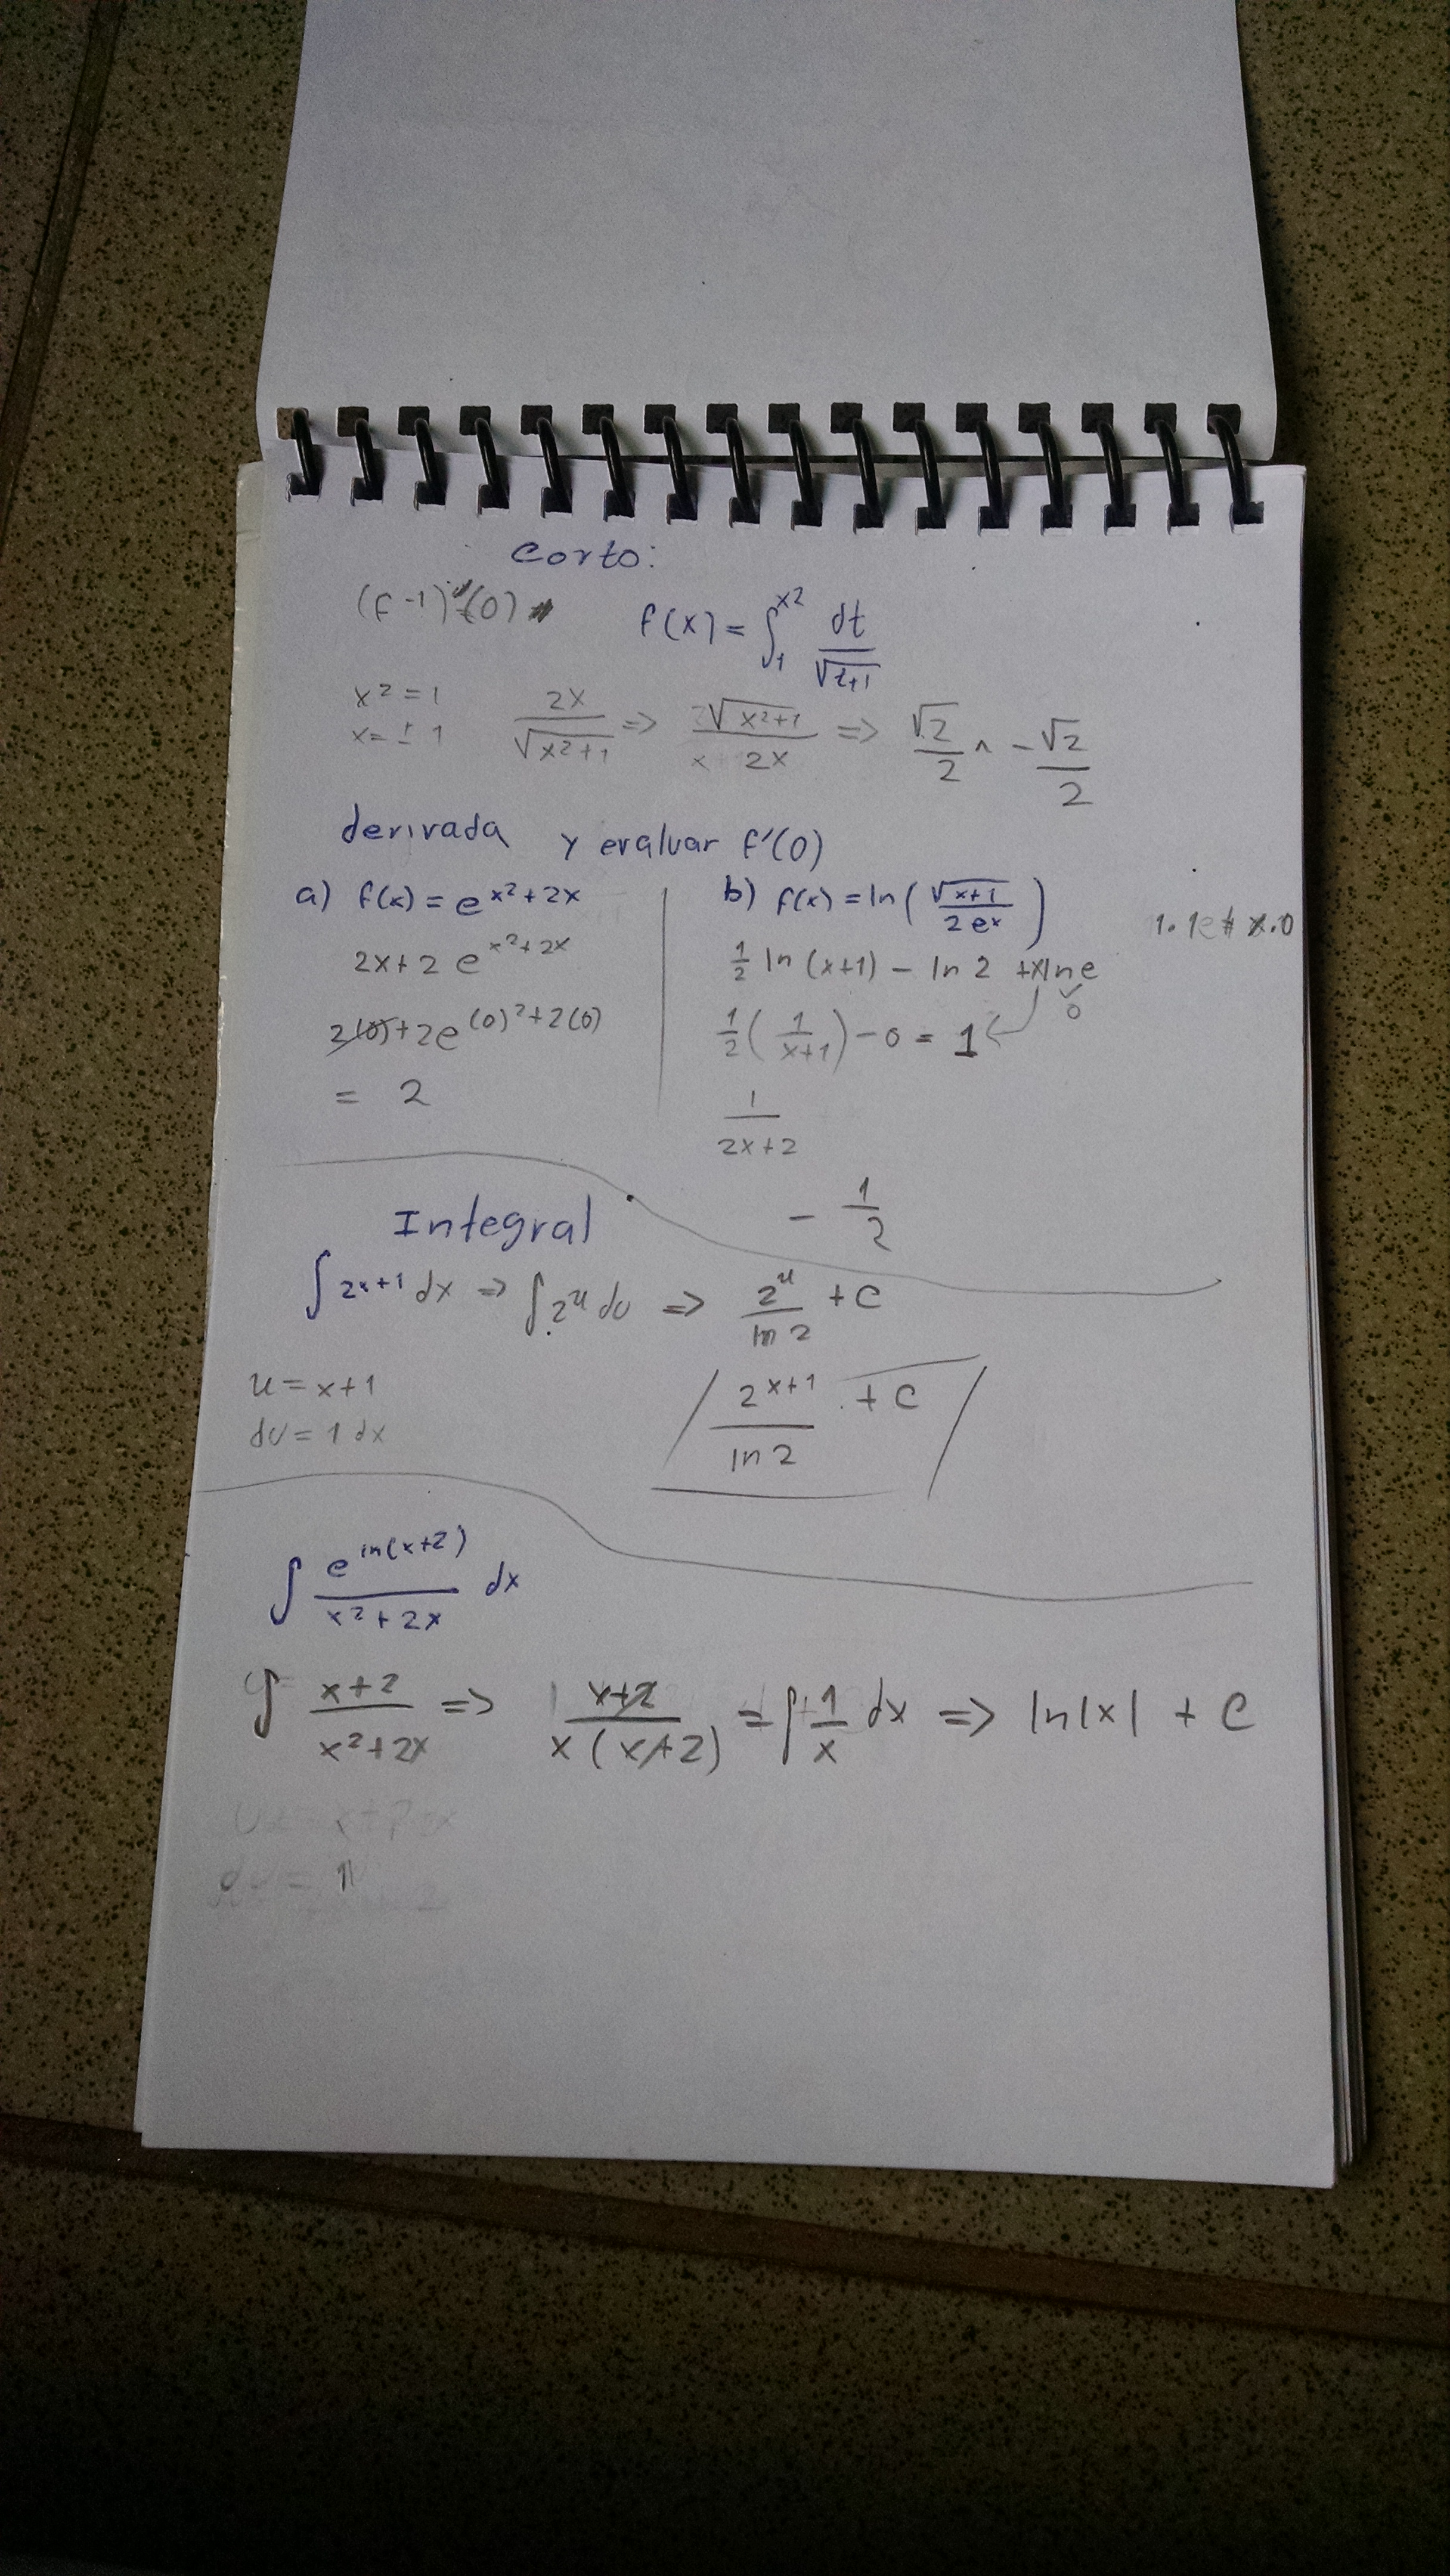 Corto:
(f -1)'(0) f(x) = ∫₁^x2 dt/√t+1
x² = 1 2x/√x²+1 => √x²+1/2x => √2/2 ^ -√2/2
x = ± 1
derivada y evaluar f'(0)
a) f(x) = e^x²+2x
2x+2 e^x²+2x
2(0)+2e^(0)²+2(0)
= 2
b) f(x) = ln(√x+1/2e^x)
½ ln (x+1) - ln 2 +xlne
0
½(1/x+1) - 0 = 1
1/2x+2
- 1/2
Integral
∫ 2^x+1 dx => ∫ 2^u du => 2^u/ln 2 + C
u = x+1
du = 1 dx
2^x+1/ln 2 + C
∫ e^ln(x+2)/x²+2x dx
∫ x+2/x²+2x => x+2/x(x+2) = ∫ 1/x dx => ln|x| + C
du = 1